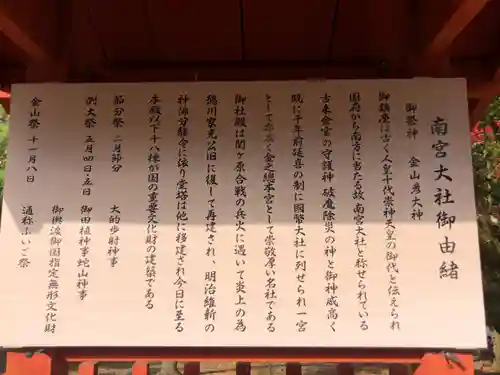 南宮大社御由緒
御祭神 金山彦大神
御鎮座は古く人皇十代崇神天皇の御代と伝えられ
国府から南方に当たる故、南宮大社と称せられている
古来金宮の守護神 破魔除災の神と御神威高く
既に千年前延喜の制に國幣大社に列せられ一宮
として亦金の総本宮として崇敬厚い名社である
御社殿は関ヶ原合戦の兵火に遇いて炎上の為
徳川家光公旧に復して再建され、明治維新の
神佛分離令に依り堂塔は他に移建され今日に至る
本殿以下十八棟が国の重要文化財の建築である
節分祭 二月節分 大的歩射神事
例大祭 五月四日・五日 御田植神事蛇山神事
御輿渡御国指定無形文化財
金山祭 十一月八日 通称ふいご祭